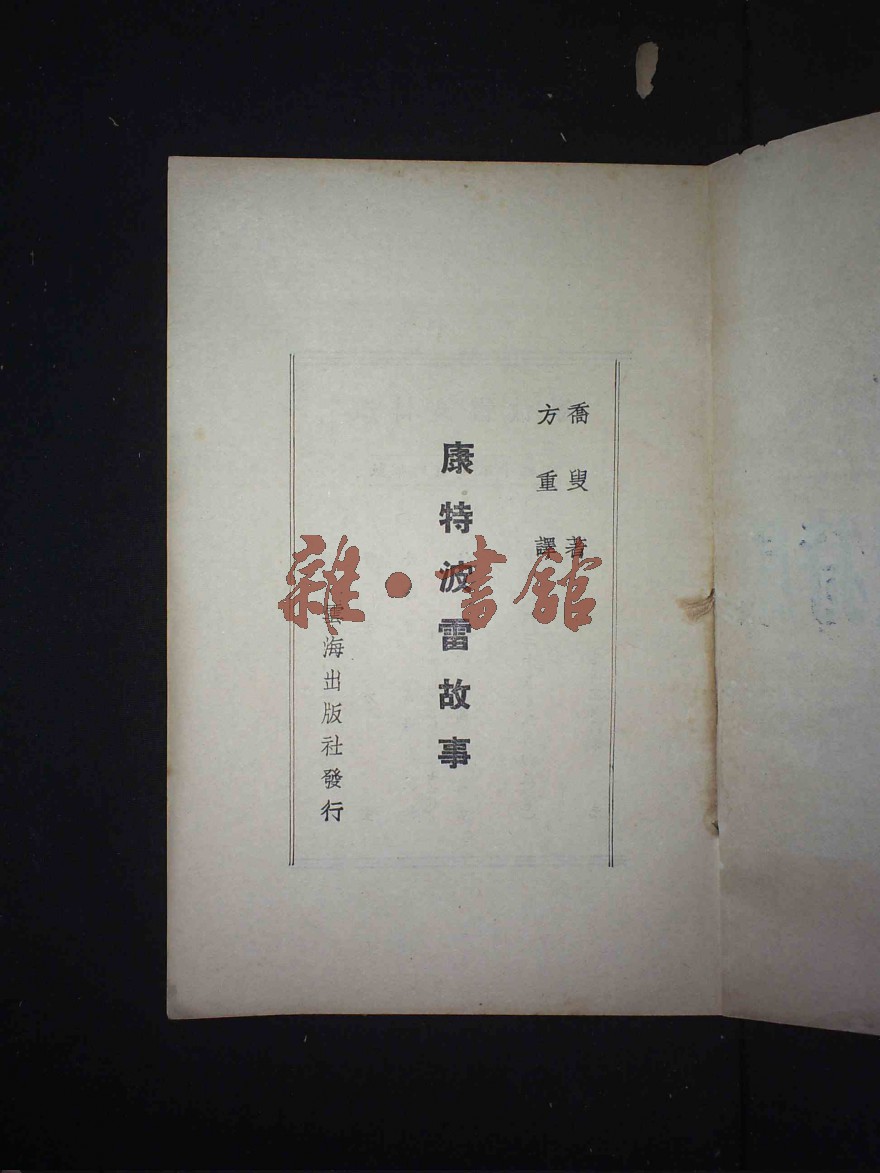 喬叟著
方重譯
康特波雷故事
雲海出版社發行
雜·書館